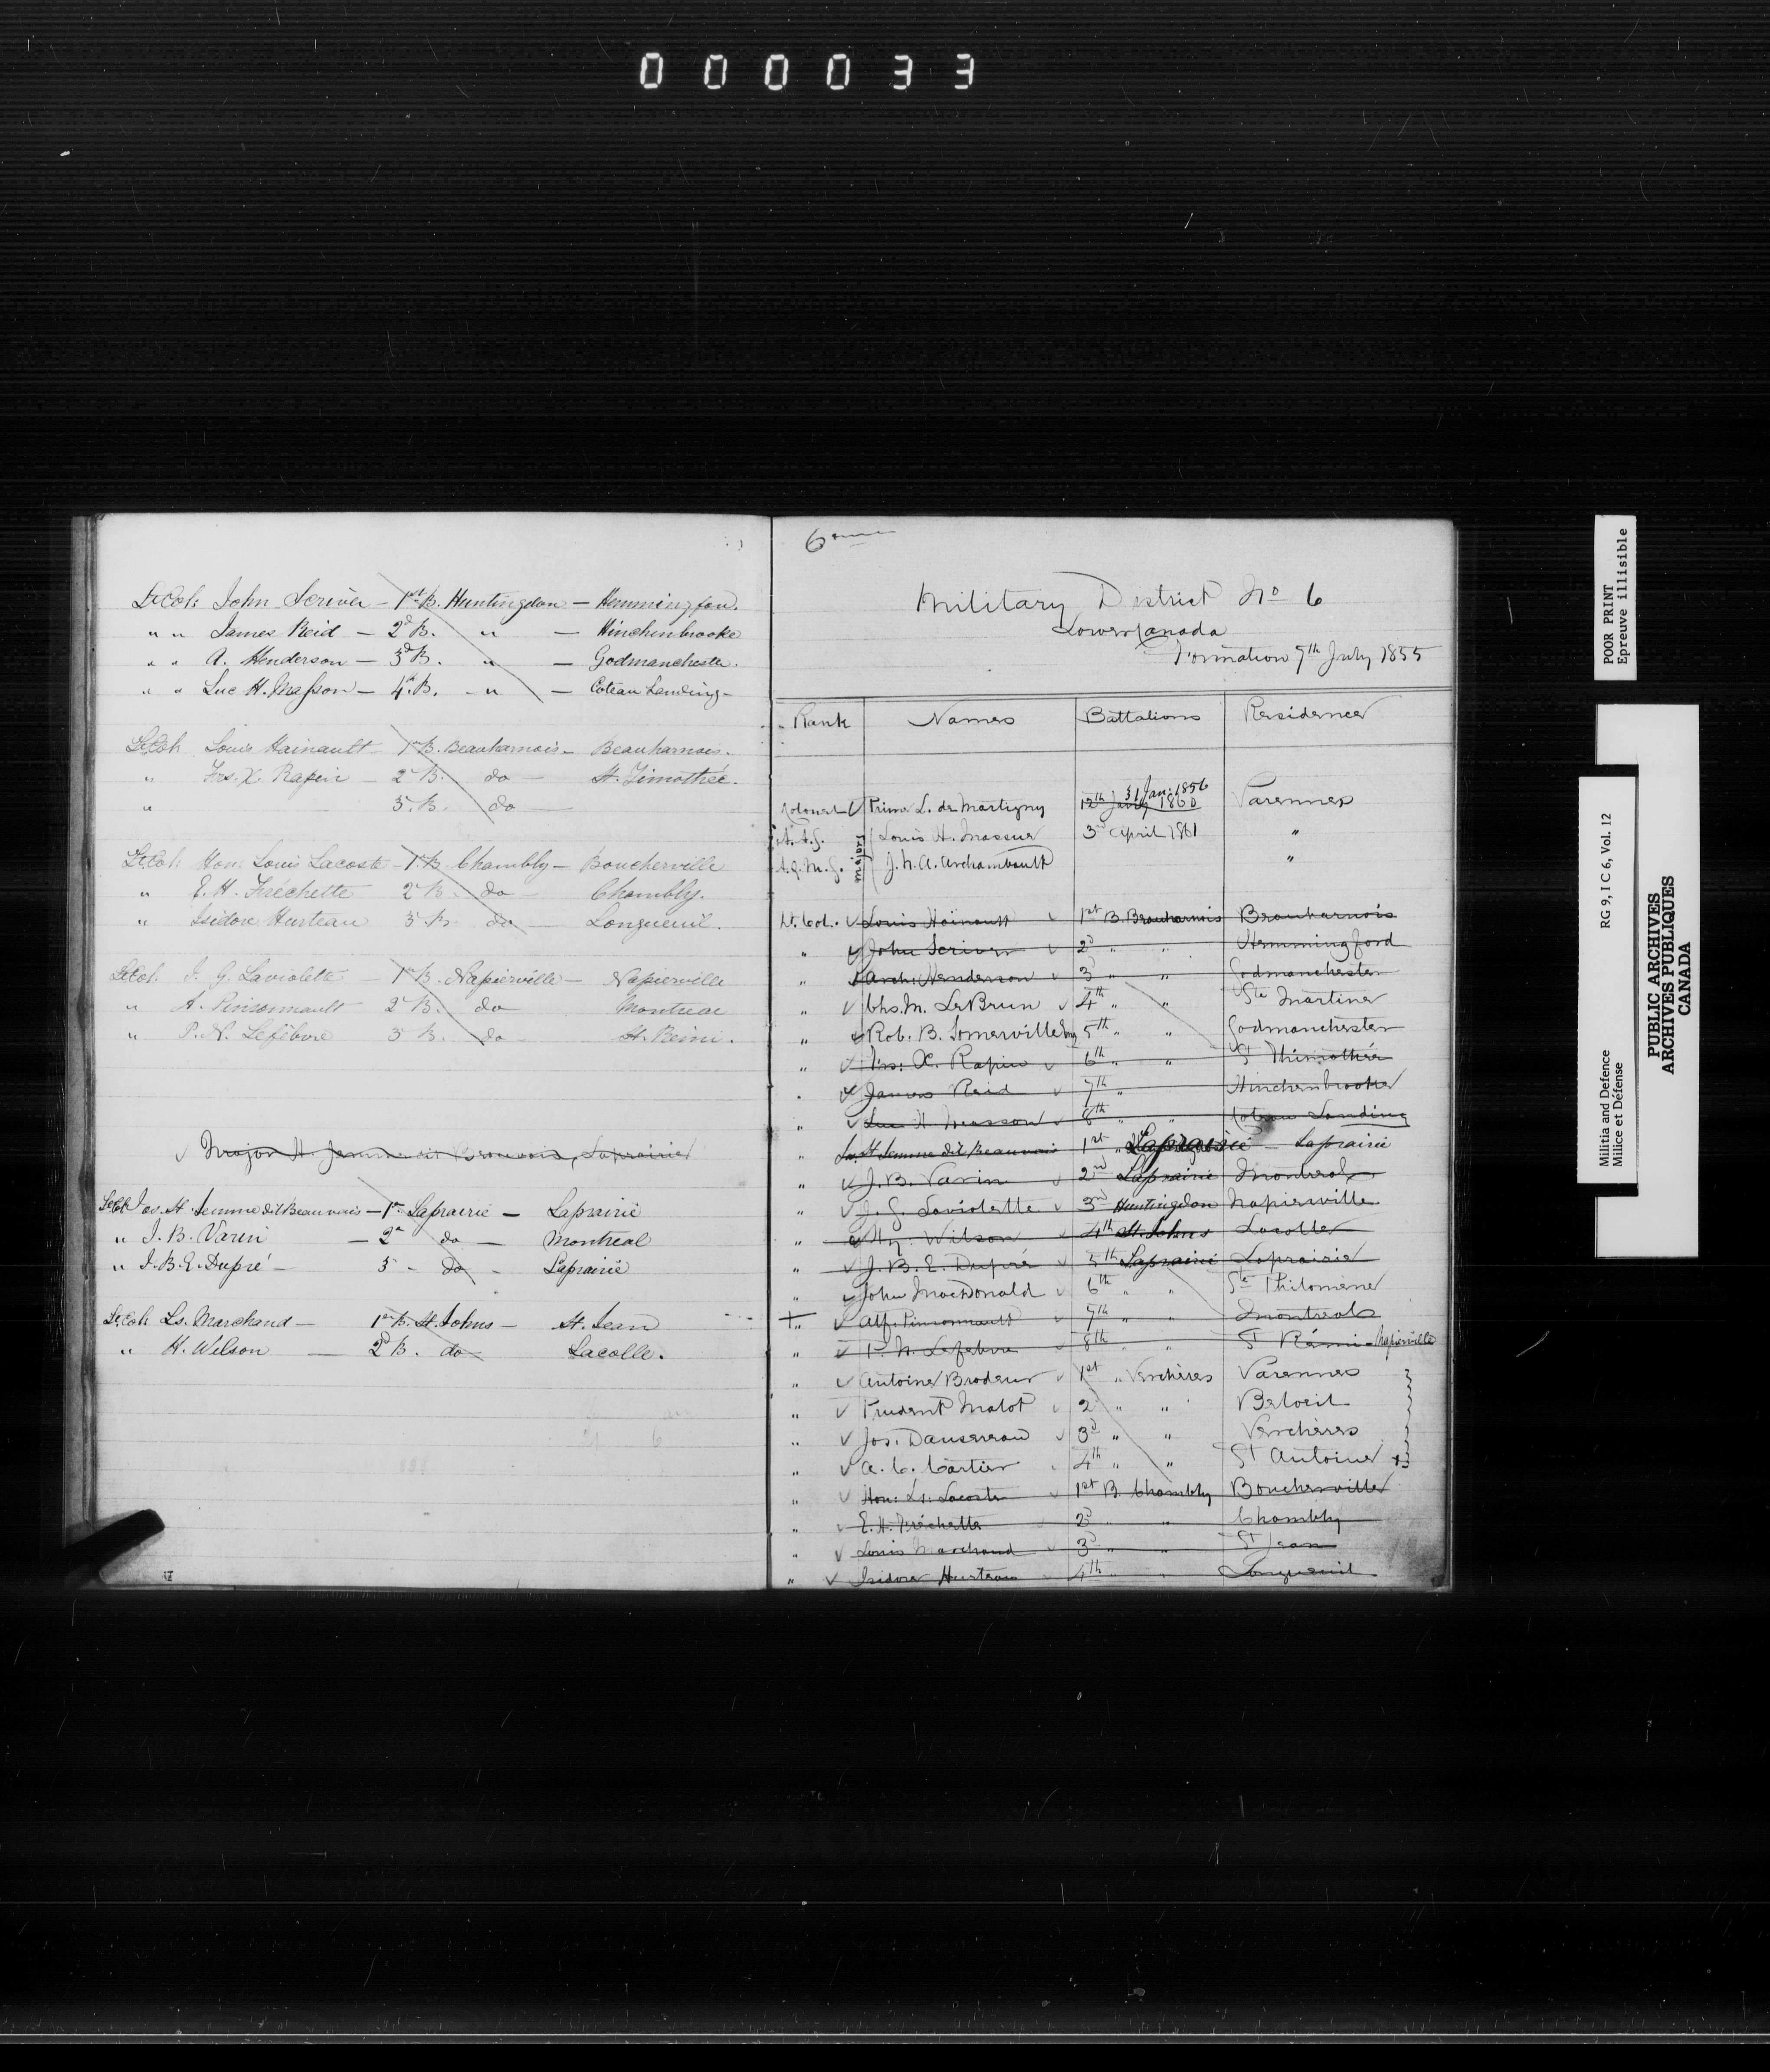 000033
Lt Col: John Scriver - 1st B. Huntingdon - Hemmingford.
" " James Reid - 2d B. " - Hinchinbrooke
" " A. Henderson - 3d B. " - Godmanchester.
" " Luc H. Masson - 4th B. - " - Coteau Landing -
Lt Col: Louis Hainault 1r B. Beauharnois - Beauharnois.
" Frs. X. Rapin - 2r B. do - St. Timothée.
" 3. B. do -
Lt Col: Hon: Louis Lacoste - 1r B Chambly - Boucherville
" E. H. Fréchette 2r B - do - Chambly.
" Isidore Hurteau 3r B - do - Longueuil.
Lt Col. J. G. Laviolette - 1r B. Napierville - Napierville
" A. Pinsonnault 2r B. do Montreal
" P. N. Lefèbvre 3 B. do - St. Remi.
✓ Major H. Jemme dit Beauvais, Laprairie
Lt Col Jos. H. Jemme dit Beauvais - 1r Laprairie - Laprairie
" J. B. Varin - 2d do - Montreal
" J. B. E. Dupré - 3 - do - Laprairie
Lt Col: Ls. Marchand - 1r B. St. Johns - St. Jean
" H. Wilson - 2d B. do Lacolle.
6eme
Military District No 6
Lower Canada
Formation 7th July 1855
Rank Names Battalions Residences
31 Jan: 1856
Colonel ✓ Prime L. de Martigny 12th 1860 Varennes
A.A.G. Majors Louis H. Masseur 3rd April 1861 "
A.Q.M.G. J. N. A. Archambault "
Lt. Col. ✓ Louis Hainault ✓ 1st B. Beauharnois Beauharnois
" ✓ John Scriver ✓ 2d " " Hemmingford
" ✓ Arch: Henderson ✓ 3 " " Godmanchester
" ✓ Chs. M. LeBrun ✓ 4th " " Ste Martine
" ✓ Rob. B. Somerville 5th " " Godmanchester
" ✓ Frs: X. Rapin ✓ 6th " " St Thimothée
" ✓ James Reid ✓ 7th " Hinchinbrooke
" ✓ Luc H. Masson ✓ 8th " " Coteau Landing
" Jos. H. Jemme dit Beauvais 1st " Laprairie - Laprairie
" ✓ J. B. Varin ✓ 2nd Laprairie Montreal
" ✓ J. G. Laviolette ✓ 3rd Huntingdon Napierville
" ✓ Hy. Wilson ✓ 4th St. Johns Lacolle
" ✓ J. B. E. Dupré ✓ 5th Laprairie Laprairie
" ✓ John MacDonald ✓ 6th " " Ste Philomène
+ " ✓ Alf. Pinsonnault ✓ 7th " " Montreal
" ✓ P. N. Lefebvre ✓ 8th " " St Rémi - Napierville
" ✓ Antoine Brodeur ✓ 1st " Verchères Varennes
" ✓ Prudent Malot ✓ 2 " " Beloeil
" ✓ Jos. Dansereau ✓ 3d " " Verchères
" ✓ A. C. Cartier ✓ 4th " " St Antoine
" ✓ Hon: Ls: Lacoste ✓ 1st B. Chambly Boucherville
" ✓ E. H. Fréchette 2d " Chambly
" ✓ Louis Marchand ✓ 3d " " St Jean
" ✓ Isidore Hurteau 4th " " Longueuil
POOR PRINT
Epreuve illisible
RG 9, I C 6, Vol. 12
Militia and Defence
Milice et Défense
PUBLIC ARCHIVES
ARCHIVES PUBLIQUES
CANADA